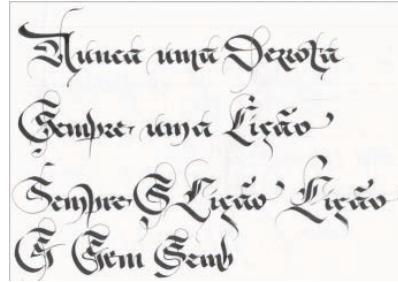 Nunca uma Derrota
Sempre uma Lição
Sempre S Lição Lição
S Sem Semp